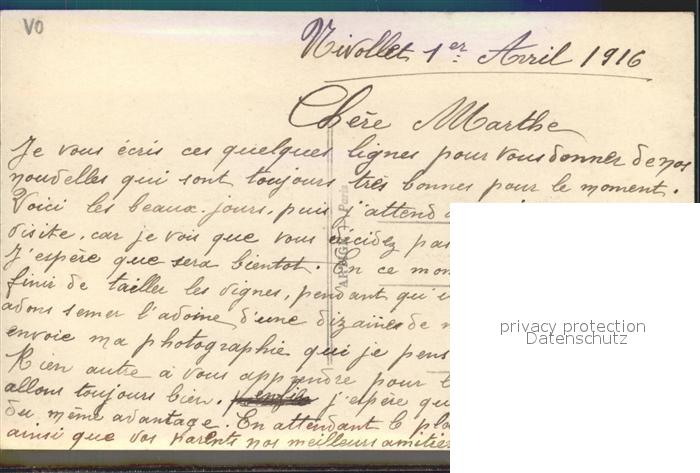 VO
Nivollet 1er Avril 1916
Chère Marthe
Je vous écris ces quelques lignes pour vous donner de nos
nouvelles qui sont toujours très bonnes pour le moment.
Voici les beaux jours, puis j'attend
visite, car je vois que vous décidez pas
J'espère que sera bientot. En ce mom
finir de tailler les vignes, pendant qu'i
avons semer l'avoine d'une dizaines de
envoie ma photographie qui je pens
Rien autre à vous apprendre pour
allons toujours bien. j'espère qu
du même avantage. En attendant le pla
ainsi que vos parents nos meilleurs amitiés
privacy protection
Datenschutz